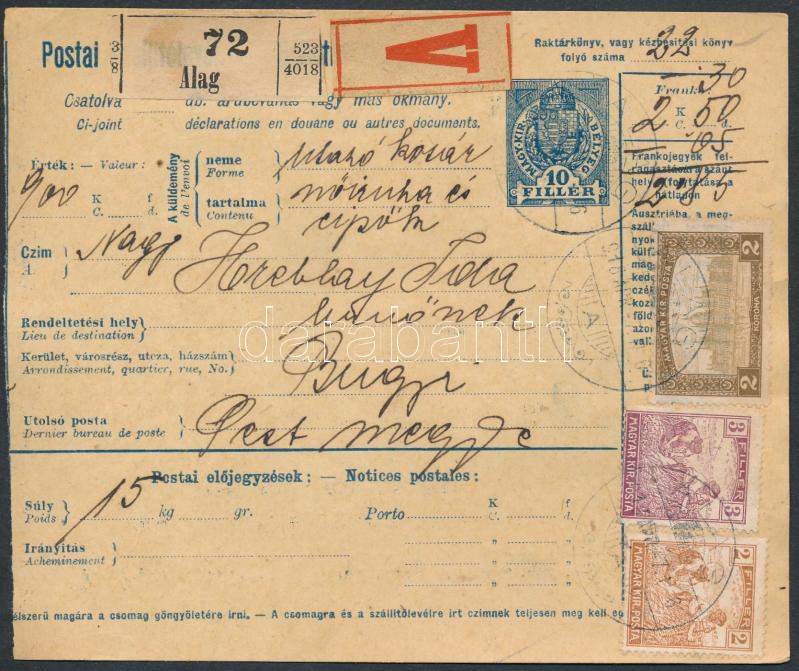 Postai
3/8
72
Alag
523
4018
V
Raktárkönyv, vagy kézbesítési könyv
folyó száma 22
Csatolva db. árubevallás vagy más okmány.
Ci-joint déclarations en douane ou autres documents.
MAGY. KIR. BÉLYEG
10
FILLÉR
Frankó
K f
C. d.
30
2 50
05
Frankojegyek fel-
ragasztására szánt
hely, folytatása a
hátlapon
Érték: — Valeur:
900 K f
C. d.
A küldemény
de l'envoi
neme
Forme
utazó kosár
tartalma
Contenu
nőiruha és
cipők
Czim
A
Nagy
Hrebblay Ida
Rendeltetési hely
Lieu de destination
Kerület, városrész, utcza, házszám
Arrondissement, quartier, rue, No.
Bugyi
Utolsó posta
Dernier bureau de poste
Pest megye
Ausztriába a meg-
2
MAGYAR KIR. POSTA
KORONA
2
3 FILLER
MAGYAR KIR. POSTA
3
2 FILLER
MAGYAR KIR. POSTA
2
Postai előjegyzések: — Notices postales:
Súly
Poids
15 kg gr.
Porto K f
C. d.
Irányítás
Acheminement
élszerű magára a csomag göngyöletére irni. — A csomagra és a szállítólevélre irt czimnek teljesen meg kell eg
darabanth